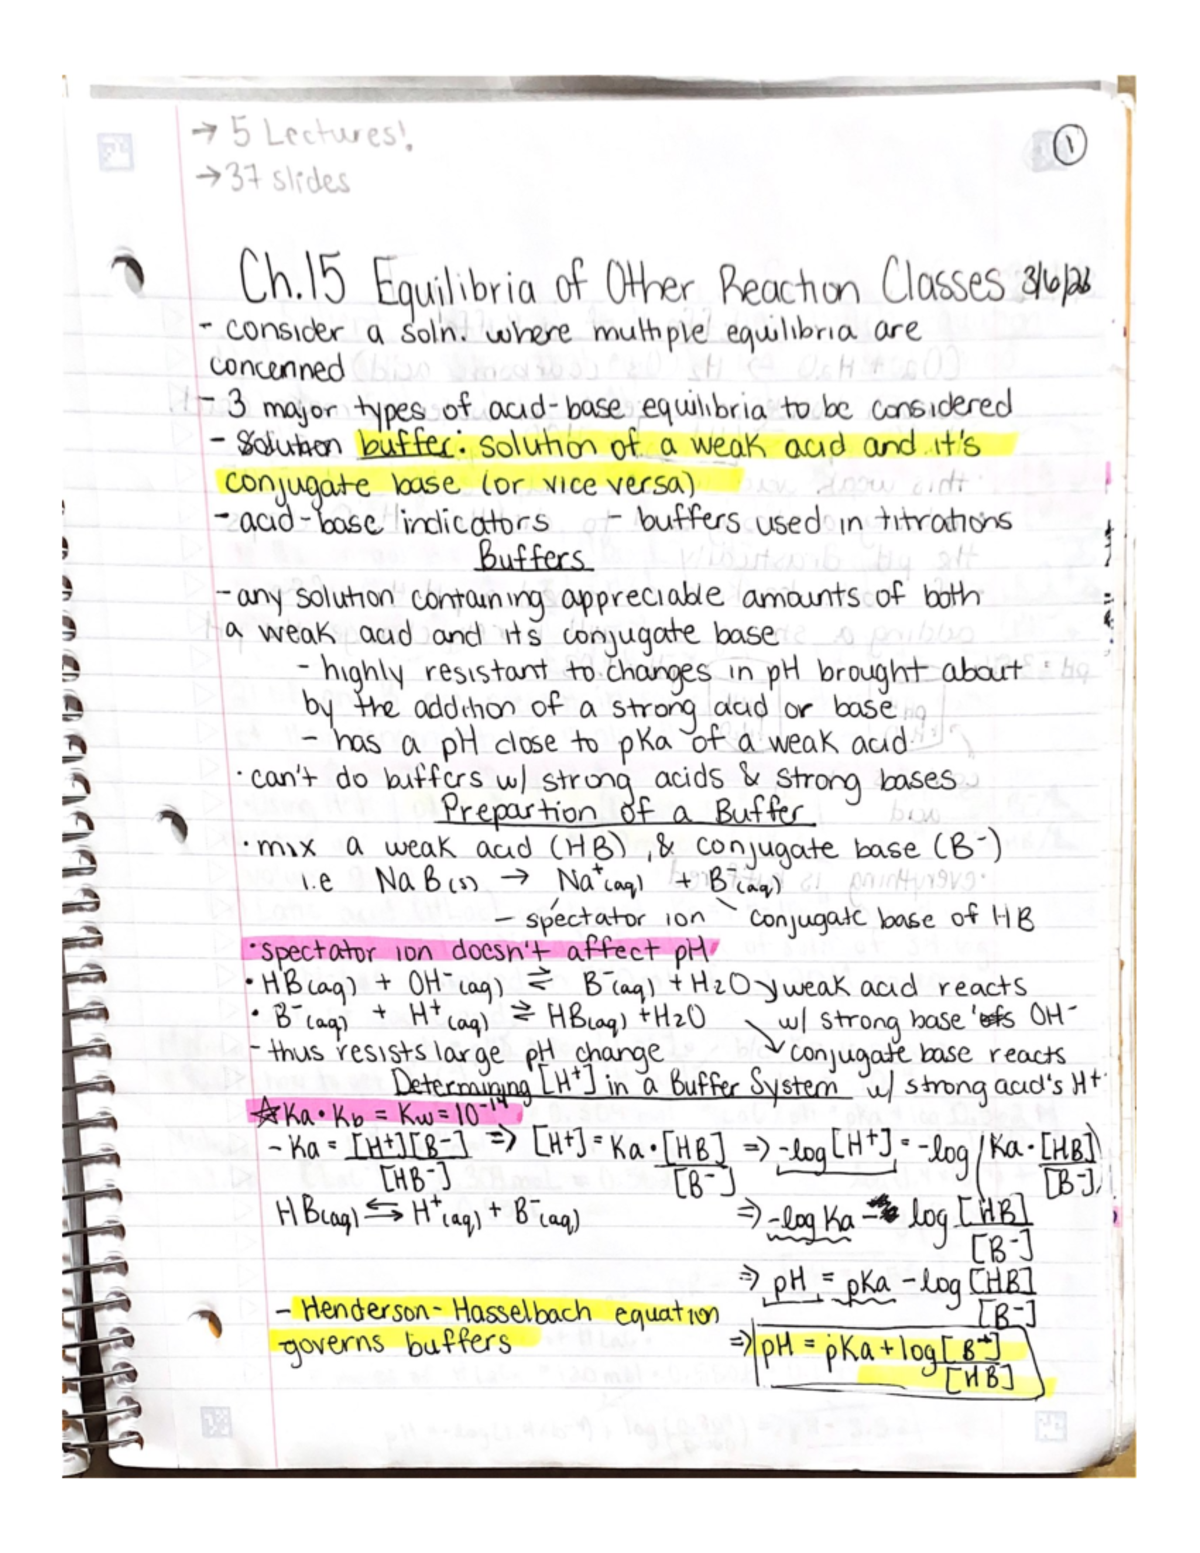 → 5 Lectures!
→ 37 slides
1
Ch.15 Equilibria of Other Reaction Classes 3/6/23
- consider a soln. where multiple equilibria are
concerned
- 3 major types of acid-base equilibria to be considered
- Solution buffer: solution of a weak acid and it's
conjugate base (or vice versa)
- acid-base indicators - buffers used in titrations
Buffers
- any solution containing appreciable amounts of both
a weak acid and its conjugate base
- highly resistant to changes in pH brought about
by the addition of a strong acid or base
- has a pH close to pKa of a weak acid
· can't do buffers w/ strong acids & strong bases
Prepartion of a Buffer
· mix a weak acid (HB), & conjugate base (B⁻)
i.e NaB(s) → Na⁺(aq) + B⁻(aq)
- spectator ion \ conjugate base of HB
· spectator ion doesn't affect pH
· HB(aq) + OH⁻(aq) ⇌ B⁻(aq) + H2O ↘ weak acid reacts
· B⁻(aq) + H⁺(aq) ⇌ HB(aq) + H2O w/ strong base's OH⁻
- thus resists large pH change ↘ conjugate base reacts
Determining [H⁺] in a Buffer System w/ strong acid's H⁺
☆ Ka · Kb = Kw = 10⁻¹⁴
- Ka = [H⁺][B⁻]/[HB⁻] ⇒ [H⁺] = Ka · [HB]/[B⁻] ⇒ -log[H⁺] = -log(Ka · [HB]/[B⁻])
HB(aq) ⇆ H⁺(aq) + B⁻(aq) ⇒ -log Ka - log [HB]/[B⁻]
⇒ pH = pKa - log [HB]/[B⁻]
- Henderson-Hasselbach equation
governs buffers ⇒ pH = pKa + log [B⁻]/[HB]